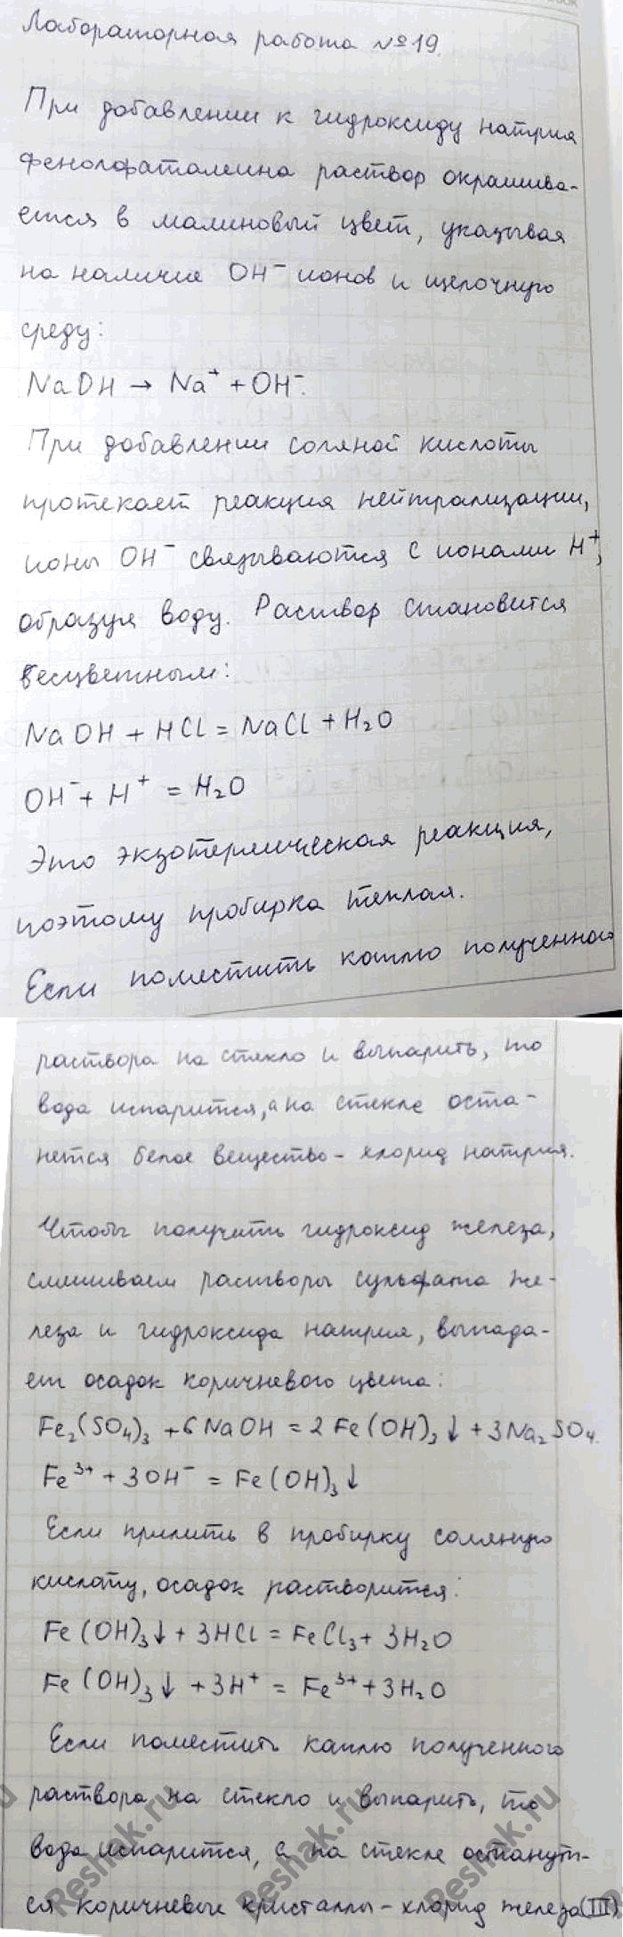 Лабораторная работа №19.
При добавлении к гидроксиду натрия
фенолфталеина раствор окрашива-
ется в малиновый цвет, указывая
на наличие OH⁻ ионов и щелочную
среду:
NaOH → Na⁺ + OH⁻.
При добавлении соляной кислоты
протекает реакция нейтрализации,
ионы OH⁻ связываются с ионами H⁺,
образуя воду. Раствор становится
бесцветным:
NaOH + HCl = NaCl + H₂O
OH⁻ + H⁺ = H₂O
Это экзотермическая реакция,
поэтому пробирка теплая.
Если поместить каплю полученного
раствора на стекло и выпарить, то
вода испарится, а на стекле оста-
нется белое вещество - хлорид натрия.
Чтобы получить гидроксид железа,
смешиваем растворы сульфата же-
леза и гидроксида натрия, выпада-
ет осадок коричневого цвета:
Fe₂(SO₄)₃ + 6NaOH = 2Fe(OH)₃↓ + 3Na₂SO₄.
Fe³⁺ + 3OH⁻ = Fe(OH)₃↓
Если прилить в пробирку соляную
кислоту, осадок растворится:
Fe(OH)₃↓ + 3HCl = FeCl₃ + 3H₂O
Fe(OH)₃↓ + 3H⁺ = Fe³⁺ + 3H₂O
Если поместить каплю полученного
раствора на стекло и выпарить, то
вода испарится, а на стекле останут-
ся коричневые кристаллы - хлорид железа (III)
Reshak.ru
Reshak.ru
Reshak.ru